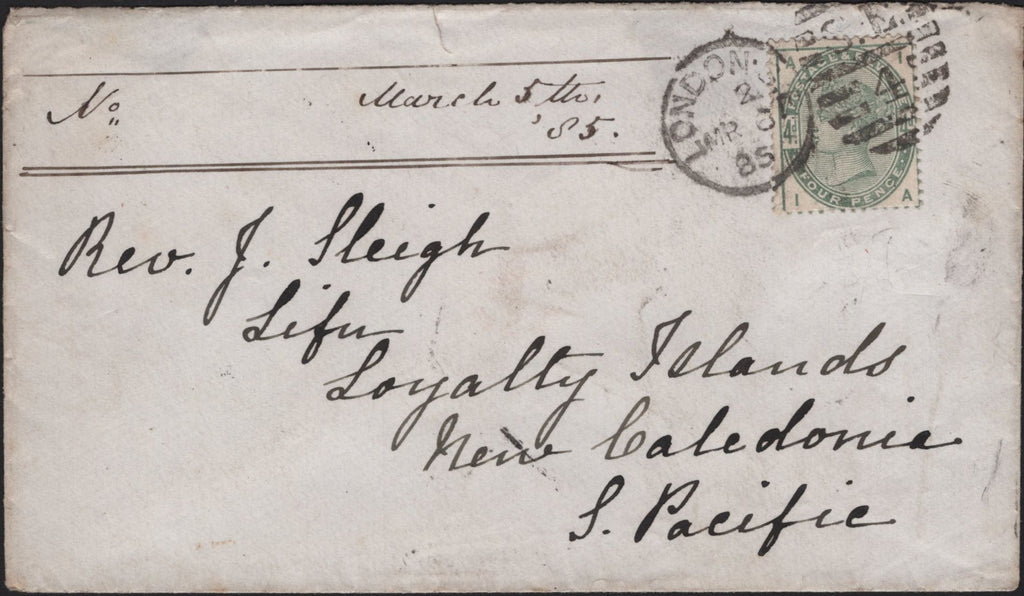 No March 5th,
'85.
LONDON
MR
85
A I
FOUR PENCE
I A
Rev. J. Sleigh
Lifu
Loyalty Islands
New Caledonia
S. Pacific